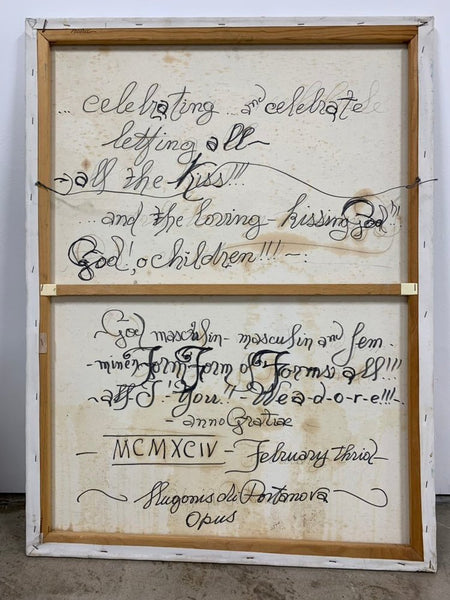 ... celebrating ... and celebrate
letting all ~
~ all the - Kiss!!!
... and the loving - kissing God!!!
God!, o children!!! ~ .
God masculin - masculin and fem
- minen Form Form of Forms: all!!!
~ all I - "You" - W-e-a-d-o-r-e!!! -
- anno Gratiae
- MCMXCIV - February thrid
~ Hugonis di Portanova ~
Opus